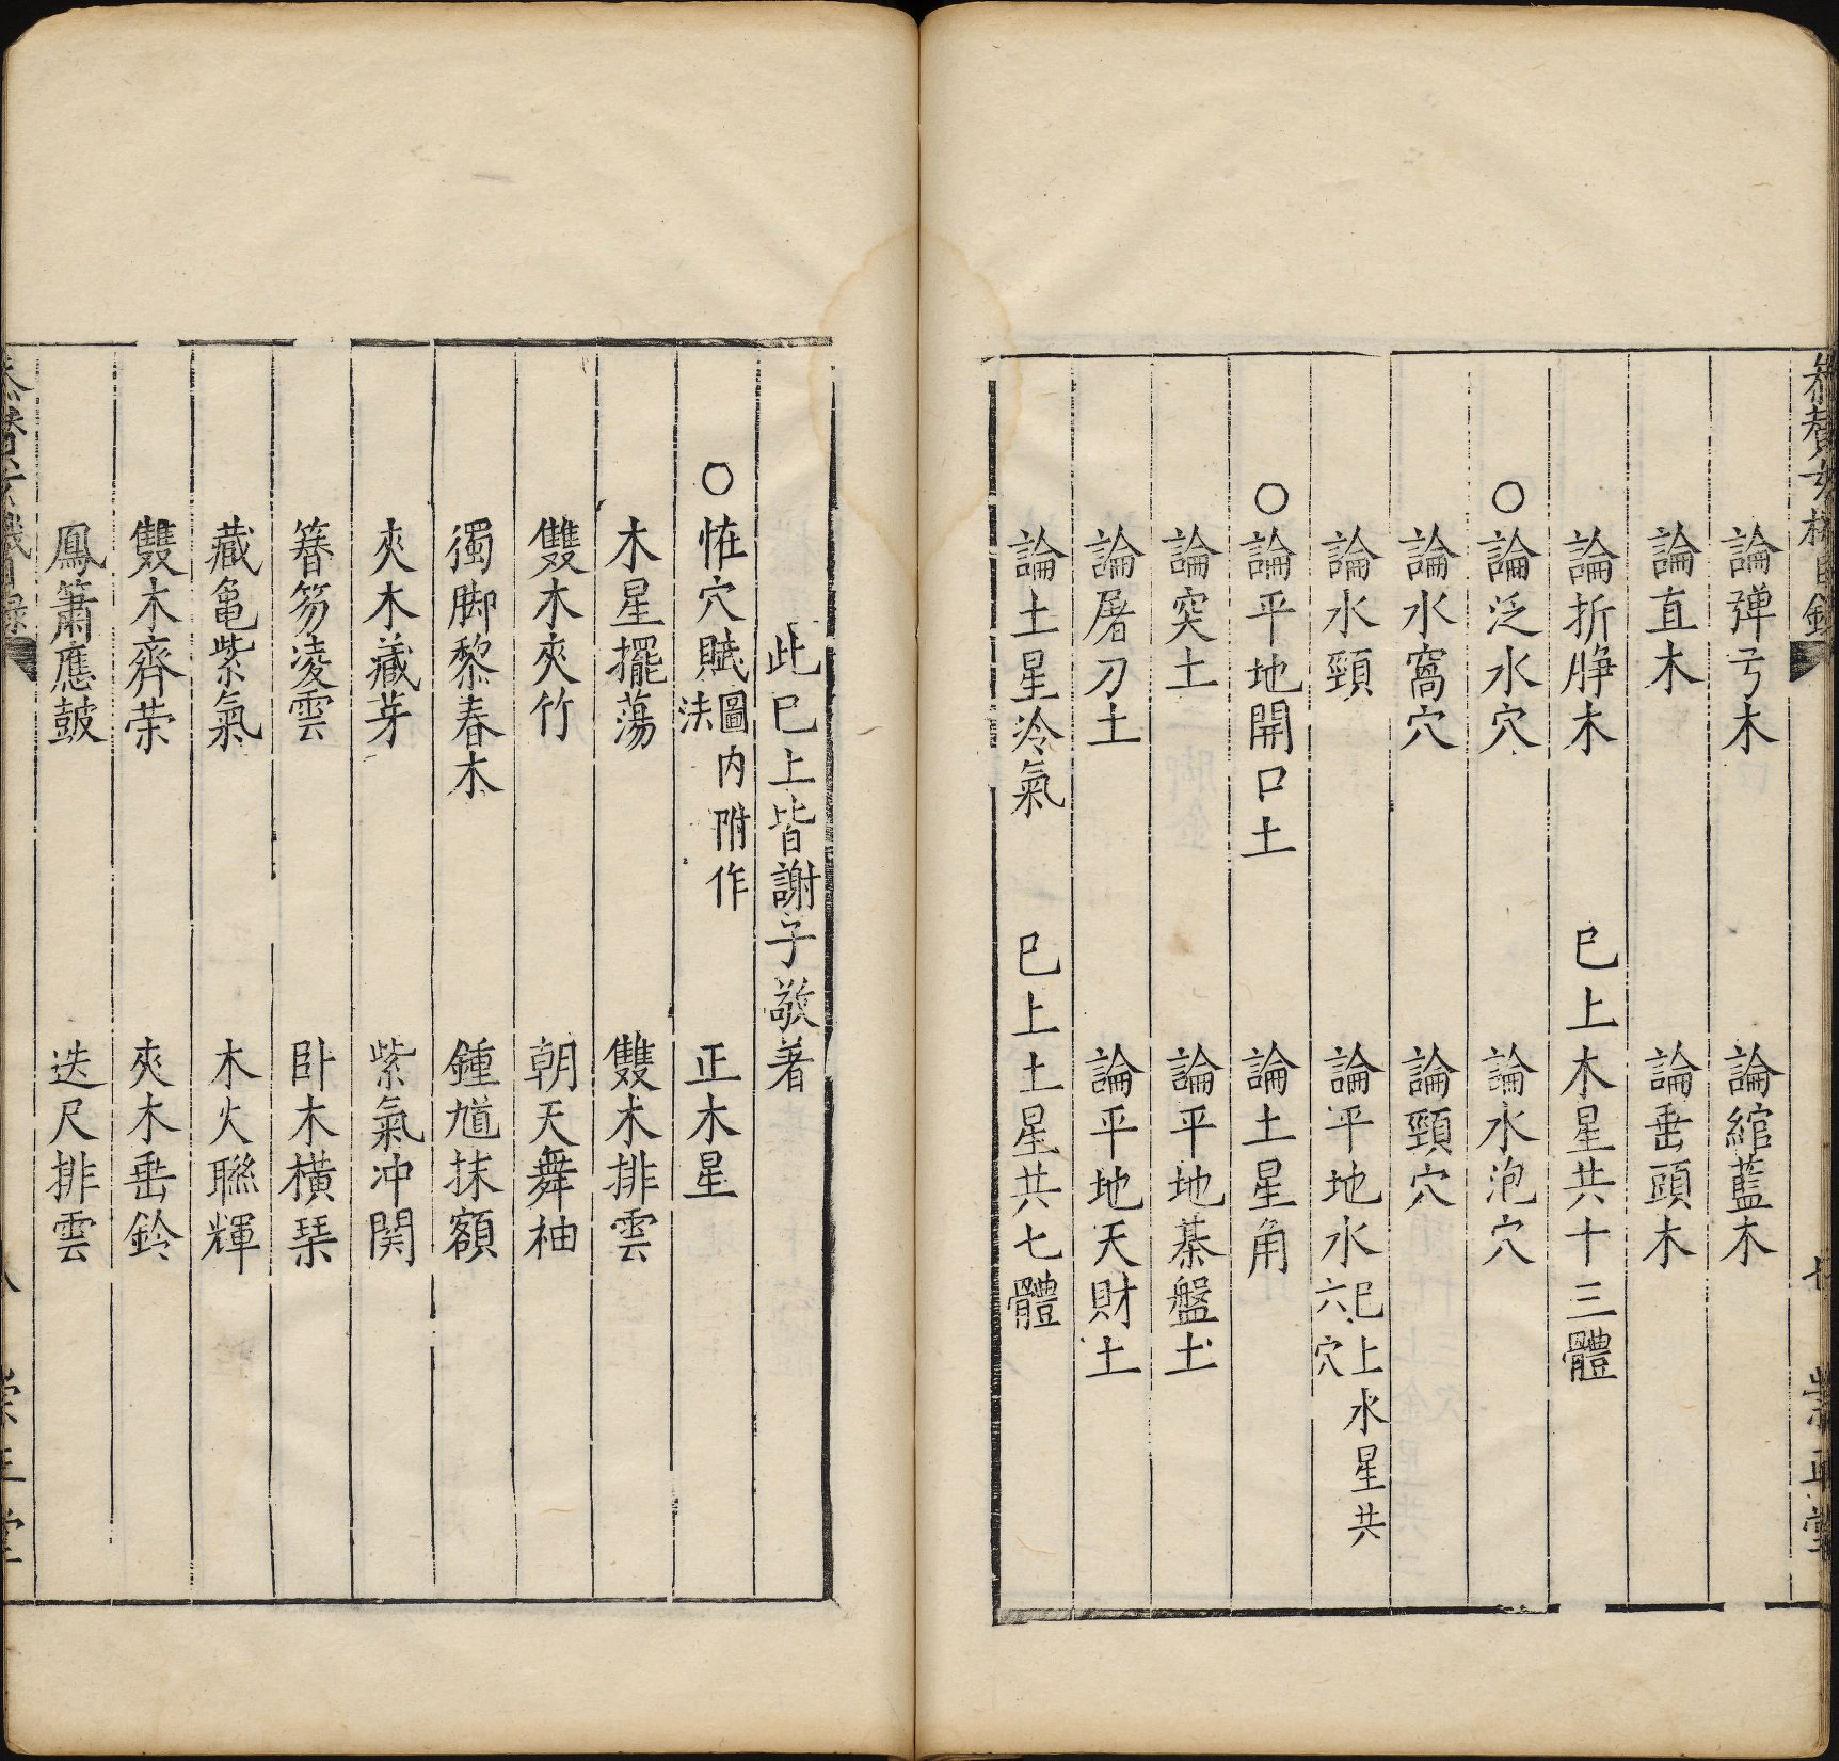 論彈弓木　論綰藍木
論直木　論垂頭木
論折腁木　已上木星共十三體
○論泛水穴　論水泡穴
論水窩穴　論頸穴
論水頸　論平地水已上水星共六穴
○論平地開口土　論土星角
論突土　論平地棊盤土
論屠刀土　論平地天財土
論土星冷氣　已上土星共七體
此已上皆謝子敬著
○恠穴賦圖内附作法　正木星
木星擺蕩　雙木排雲
雙木夾竹　朝天舞袖
獨脚黎春木　鍾馗抹額
夾木藏芽　紫氣冲関
簪笏凌雲　卧木橫琹
藏亀紫氣　木火聮輝
雙木齊荣　夾木垂鈴
鳳簫應鼓　迭尺排雲